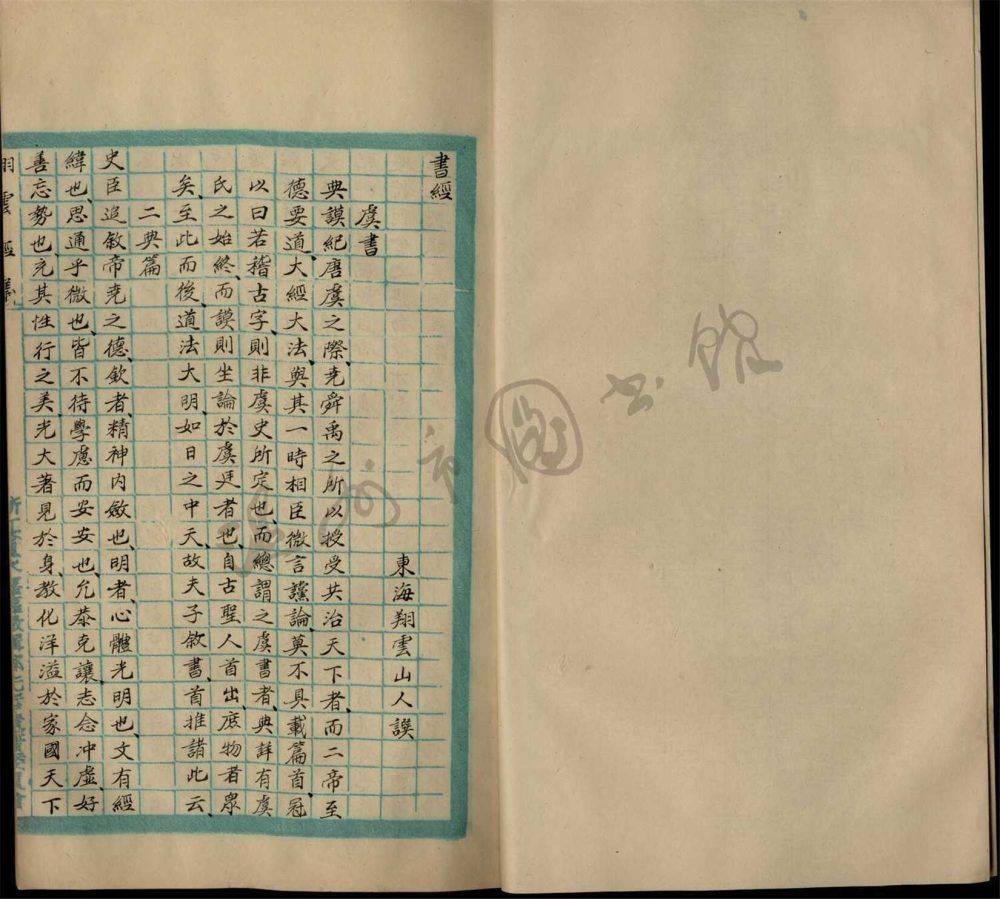 書經
東海翔雲山人譔
虞書
典謨紀唐虞之際、堯舜禹之所以授受共治天下者、而二帝至
德要道、大經大法、與其一時相臣微言讜論、莫不具載篇首、冠
以曰若稽古字、則非虞史所定也、而總謂之虞書者、典詳有虞
氏之始終、而謨則坐論於虞廷者也、自古聖人首出庶物者眾
矣、至此而後、道法大明、如日之中天、故夫子敘書、首推諸此云、
二典篇
史臣追敘帝堯之德、欽者、精神內斂也、明者、心體光明也、文有經
緯也、思通乎微也、皆不待學慮而安安也、允恭克讓、志念冲虛、好
善忘勢也、充其性行之美、光大著見於身、教化洋溢於家國天下
州市圖書館